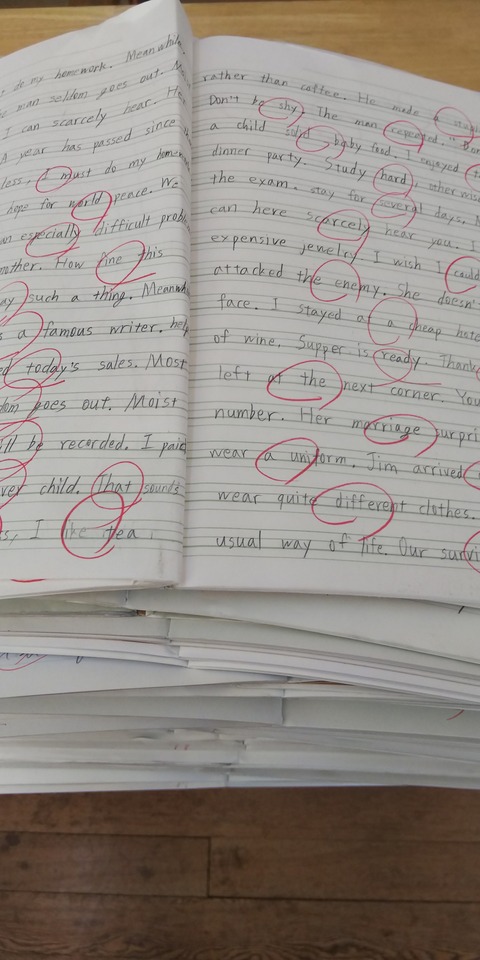 do my homework. Meanwhile,
man seldom goes out.
I can scarcely hear. He
A year has passed since
less, I must do my home
hope for world peace. We
especially difficult prob
mother. How fine this
such a thing. Meanwh
a famous writer. help
today's sales. Most
dom goes out. Moist
will be recorded. I paid
child. That sounds
I like tea.
rather than coffee. He made a
Don't be shy. The man repeated. "Don
a child solid baby food. I enjoyed
dinner party. Study hard, other
the exam. stay for several days. I
can here scarcely hear you. I
expensive jewelry I wish I could
attacked the enemy. She doesn't
face. I stayed at a cheap hote
of wine. Supper is ready. Thank
left at the next corner. You
number. Her marriage surpri
wear a uniform. Jim arrived
wear quite different clothes.
usual way of life. Our survi